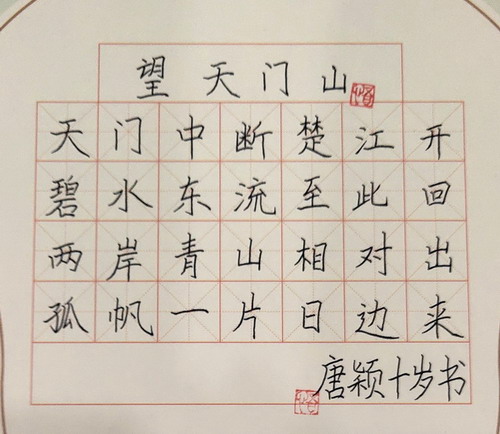 望天门山
天门中断楚江开
碧水东流至此回
两岸青山相对出
孤帆一片日边来
唐颖十岁书